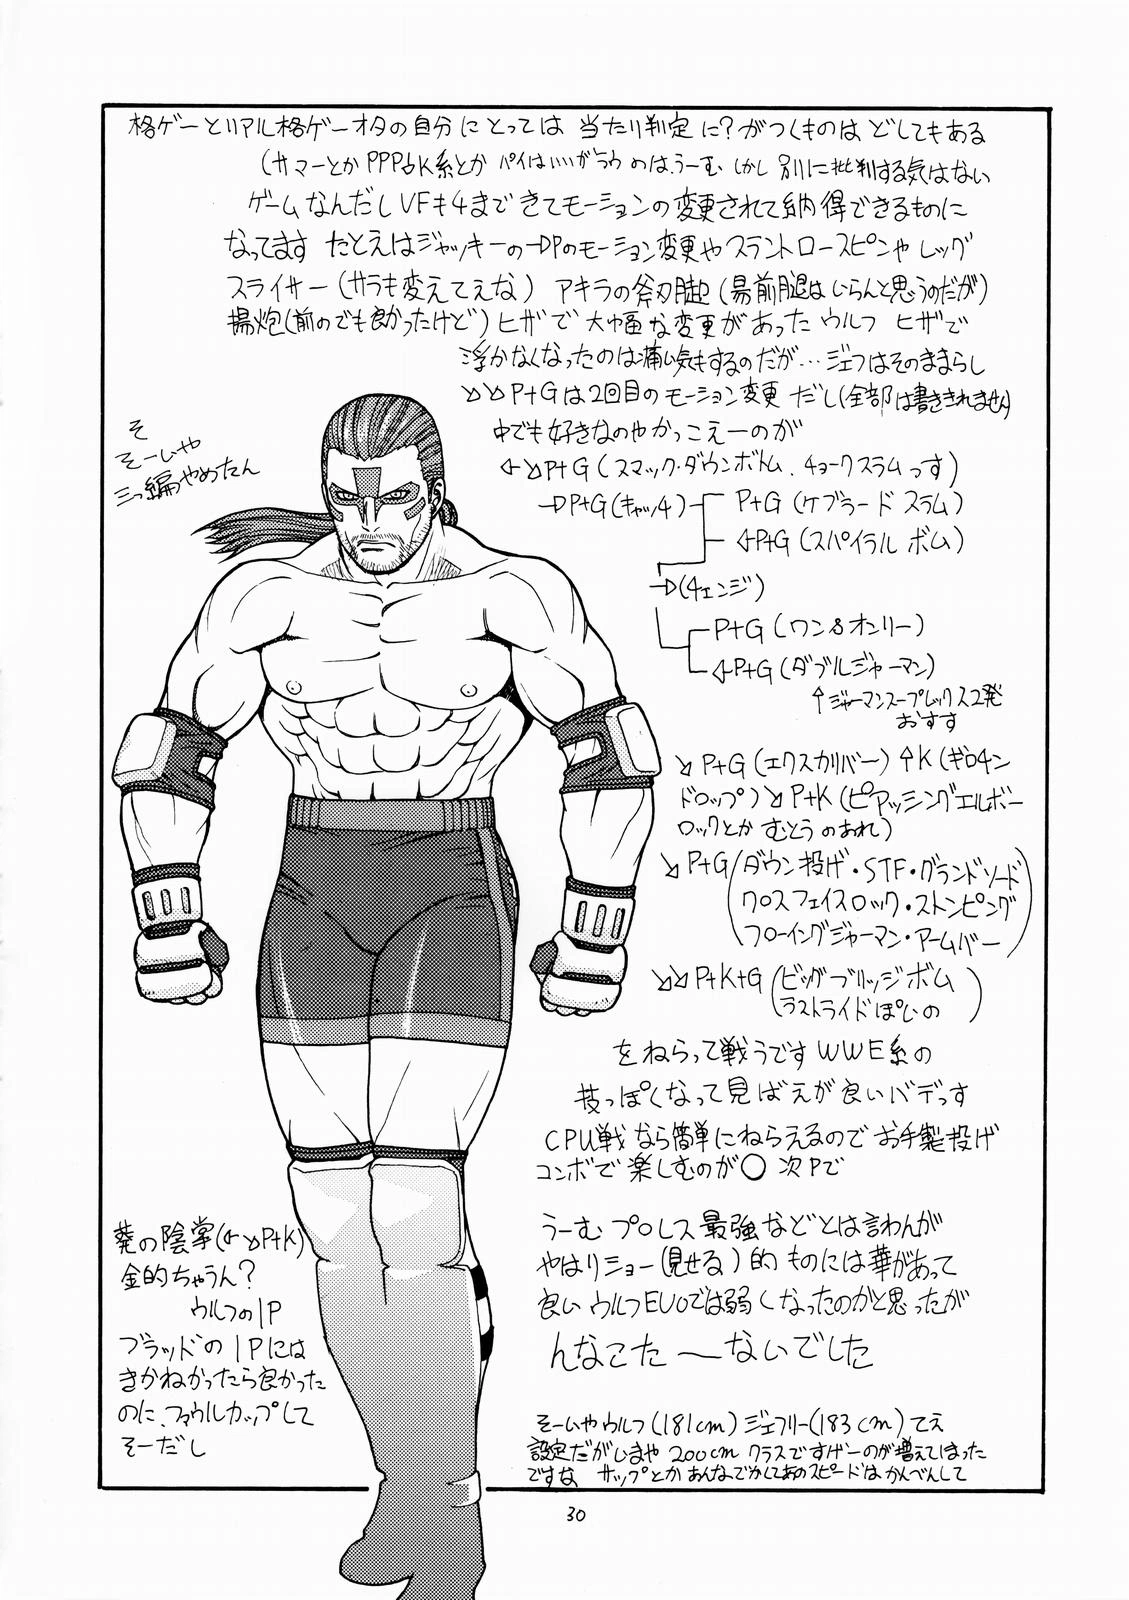 格ゲーとリアル格ゲーオタの自分にとっては 当たり判定に?がつくものは どしてもある
(サマーとか PPP↓K系とか パイはいいがラウのは、うーむ しかし 別に批判する気はない
ゲームなんだし VFも4まできてモーションの変更されて納得できるものに
なってます たとえばジャッキーの→Pのモーション変更や スラントロースピンや レッグ
スライサー(サラも変えてえな) アキラの斧刃脚(昜前腿はいらんと思うのだが)
揚炮(前のでも良かったけど) ヒザで 大幅な変更があった ウルフ ヒザで
浮かなくなったのは痛い気もするのだが… ジェフはそのままらし
↘↘P+Gは2回目のモーション変更 だし(全部は書ききれません)
中でも好きなのやかっこえーのが
←↘P+G (スマック・ダウンボトム、チョークスラムっす)
→P+G(キャッチ) P+G (ケブラード スラム)
←P+G (スパイラル ボム)
→(チェンジ)
P+G (ワン&オンリー)
←P+G (ダブルジャーマン)
↑ジャーマンスープレックス2発
おすすす
↘P+G (エクスカリバー) ↑K (ギロチン
ドロップ) ↘P+K (ピアッシングエルボー
ロックとか むとうのあれ)
↘P+G (ダウン投げ・STF・グランドソード
クロスフェイスロック・ストンピング
フローイングジャーマン・アームバー)
↘↘P+K+G (ビッグブリッジボム
ラストライドぽいの)
をねらって戦うです WWE系の
技っぽくなって見ばえが良いバデっす
CPU戦なら簡単にねらえるのでお手製投げ
コンボで楽しむのが○ 次Pで
うーむ プロレス最強などとは言わんが
やはりショー(見せる)的ものには華があって
良い ウルフEVOでは弱くなったのかと思ったが
んなこた〜ないでした
そーいやウルフ(181cm)ジェフリー(183cm)てえ
設定だがいまや 200cm クラスですげーのが増えてしまった
ですな サップとか あんなでかしてあのスピードは かんべんして
そ
そーいや
三つ編やめたん
葵の陰掌(←↘P+K)
金的ちゃうん?
ウルフの1P
ブラッドの1Pには
きかねかったら良かった
のに、ファウルカップして
そーだし
30